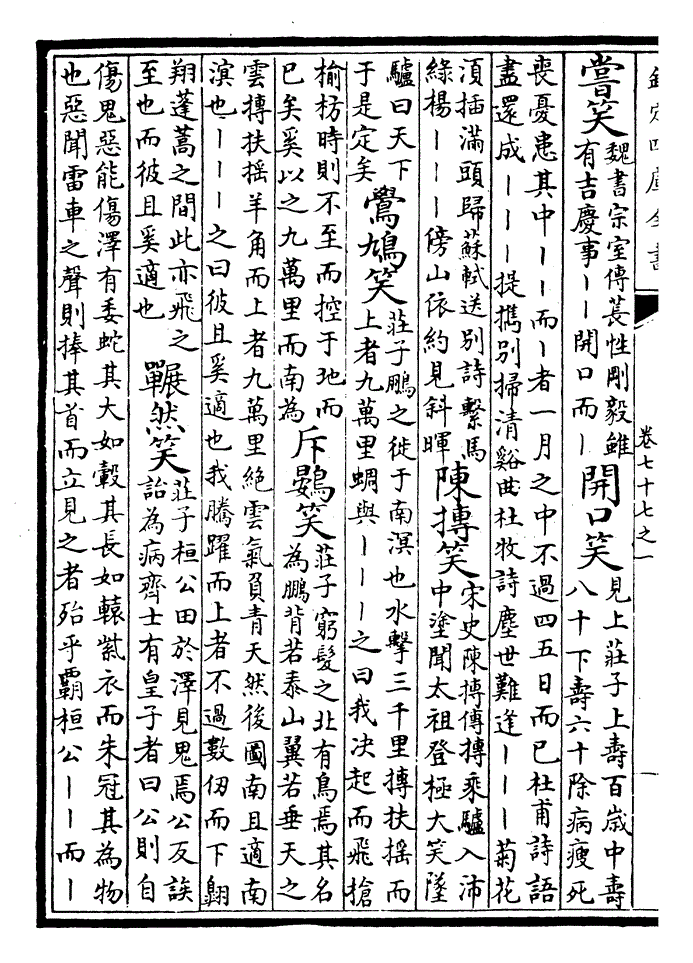 欽定四庫全書
卷七十七之一
一
嘗笑
魏書宗室傳萇性剛毅雖
有吉慶事丨丨開口而丨
開口笑
見上莊子上壽百歲中壽
八十下壽六十除病瘦死
喪憂患其中丨丨而丨者一月之中不過四五日而已杜甫詩語
盡還成丨丨丨提攜別掃清谿曲杜牧詩塵世難逢丨丨丨菊花
須插滿頭歸蘇軾送別詩繫馬
綠楊丨丨丨傍山依約見斜暉
陳摶笑
宋史陳摶傳摶乘驢入沛
中塗聞太祖登極大笑墜
驢曰天下
于是定矣
鷽鳩笑
莊子鵬之徙于南溟也水擊三千里摶扶摇而
上者九萬里蜩與丨丨丨之曰我决起而飛槍
榆枋時則不至而控于地而
已矣奚以之九萬里而南為
斥鷃笑
莊子窮髮之北有鳥焉其名
為鵬背若泰山翼若垂天之
雲摶扶摇羊角而上者九萬里絶雲氣負青天然後圖南且適南
溟也丨丨丨之曰彼且奚適也我騰躍而上者不過數仞而下翱
翔蓬蒿之間此亦飛之
至也而彼且奚適也
囅然笑
莊子桓公田於澤見鬼焉公反誒
詒為病齊士有皇子者曰公則自
傷鬼惡能傷澤有委蛇其大如轂其長如轅紫衣而朱冠其為物
也惡聞雷車之聲則捧其首而立見之者殆乎霸桓公丨丨而丨